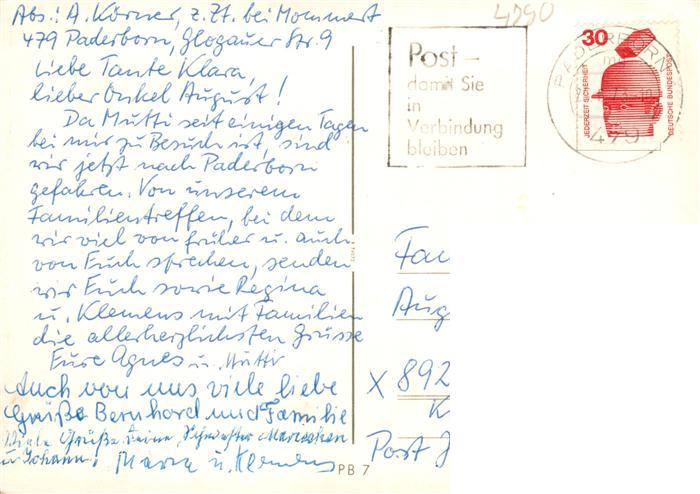 Abs.: A. Körner, z. Zt. bei Mommert
479 Paderborn, Glogauer Str. 9
Liebe Tante Klara,
lieber Onkel August!
Da Mutti seit einigen Tagen
bei mir zu Besuch ist, sind
wir jetzt nach Paderborn
gefahren. Von unserem
Familientreffen, bei dem
wir viel von früher u. auch
von Euch sprechen, senden
wir Euch sowie Regina
u. Klemens mit Familien
die allerherzlichsten Grüsse
Eure Agnes u. Mutti
Auch von uns viele liebe
Grüße Bernhard und Familie
Viele Grüße Deine Schwester
u. Johann. Maria u. Klemens
PB 7
4290
Post –
damit Sie
in
Verbindung
bleiben
PADERBORN
479
30
JEDERZEIT SICHERHEIT
DEUTSCHE BUNDESPOST
Fam
Aug
X 892
K
Post J